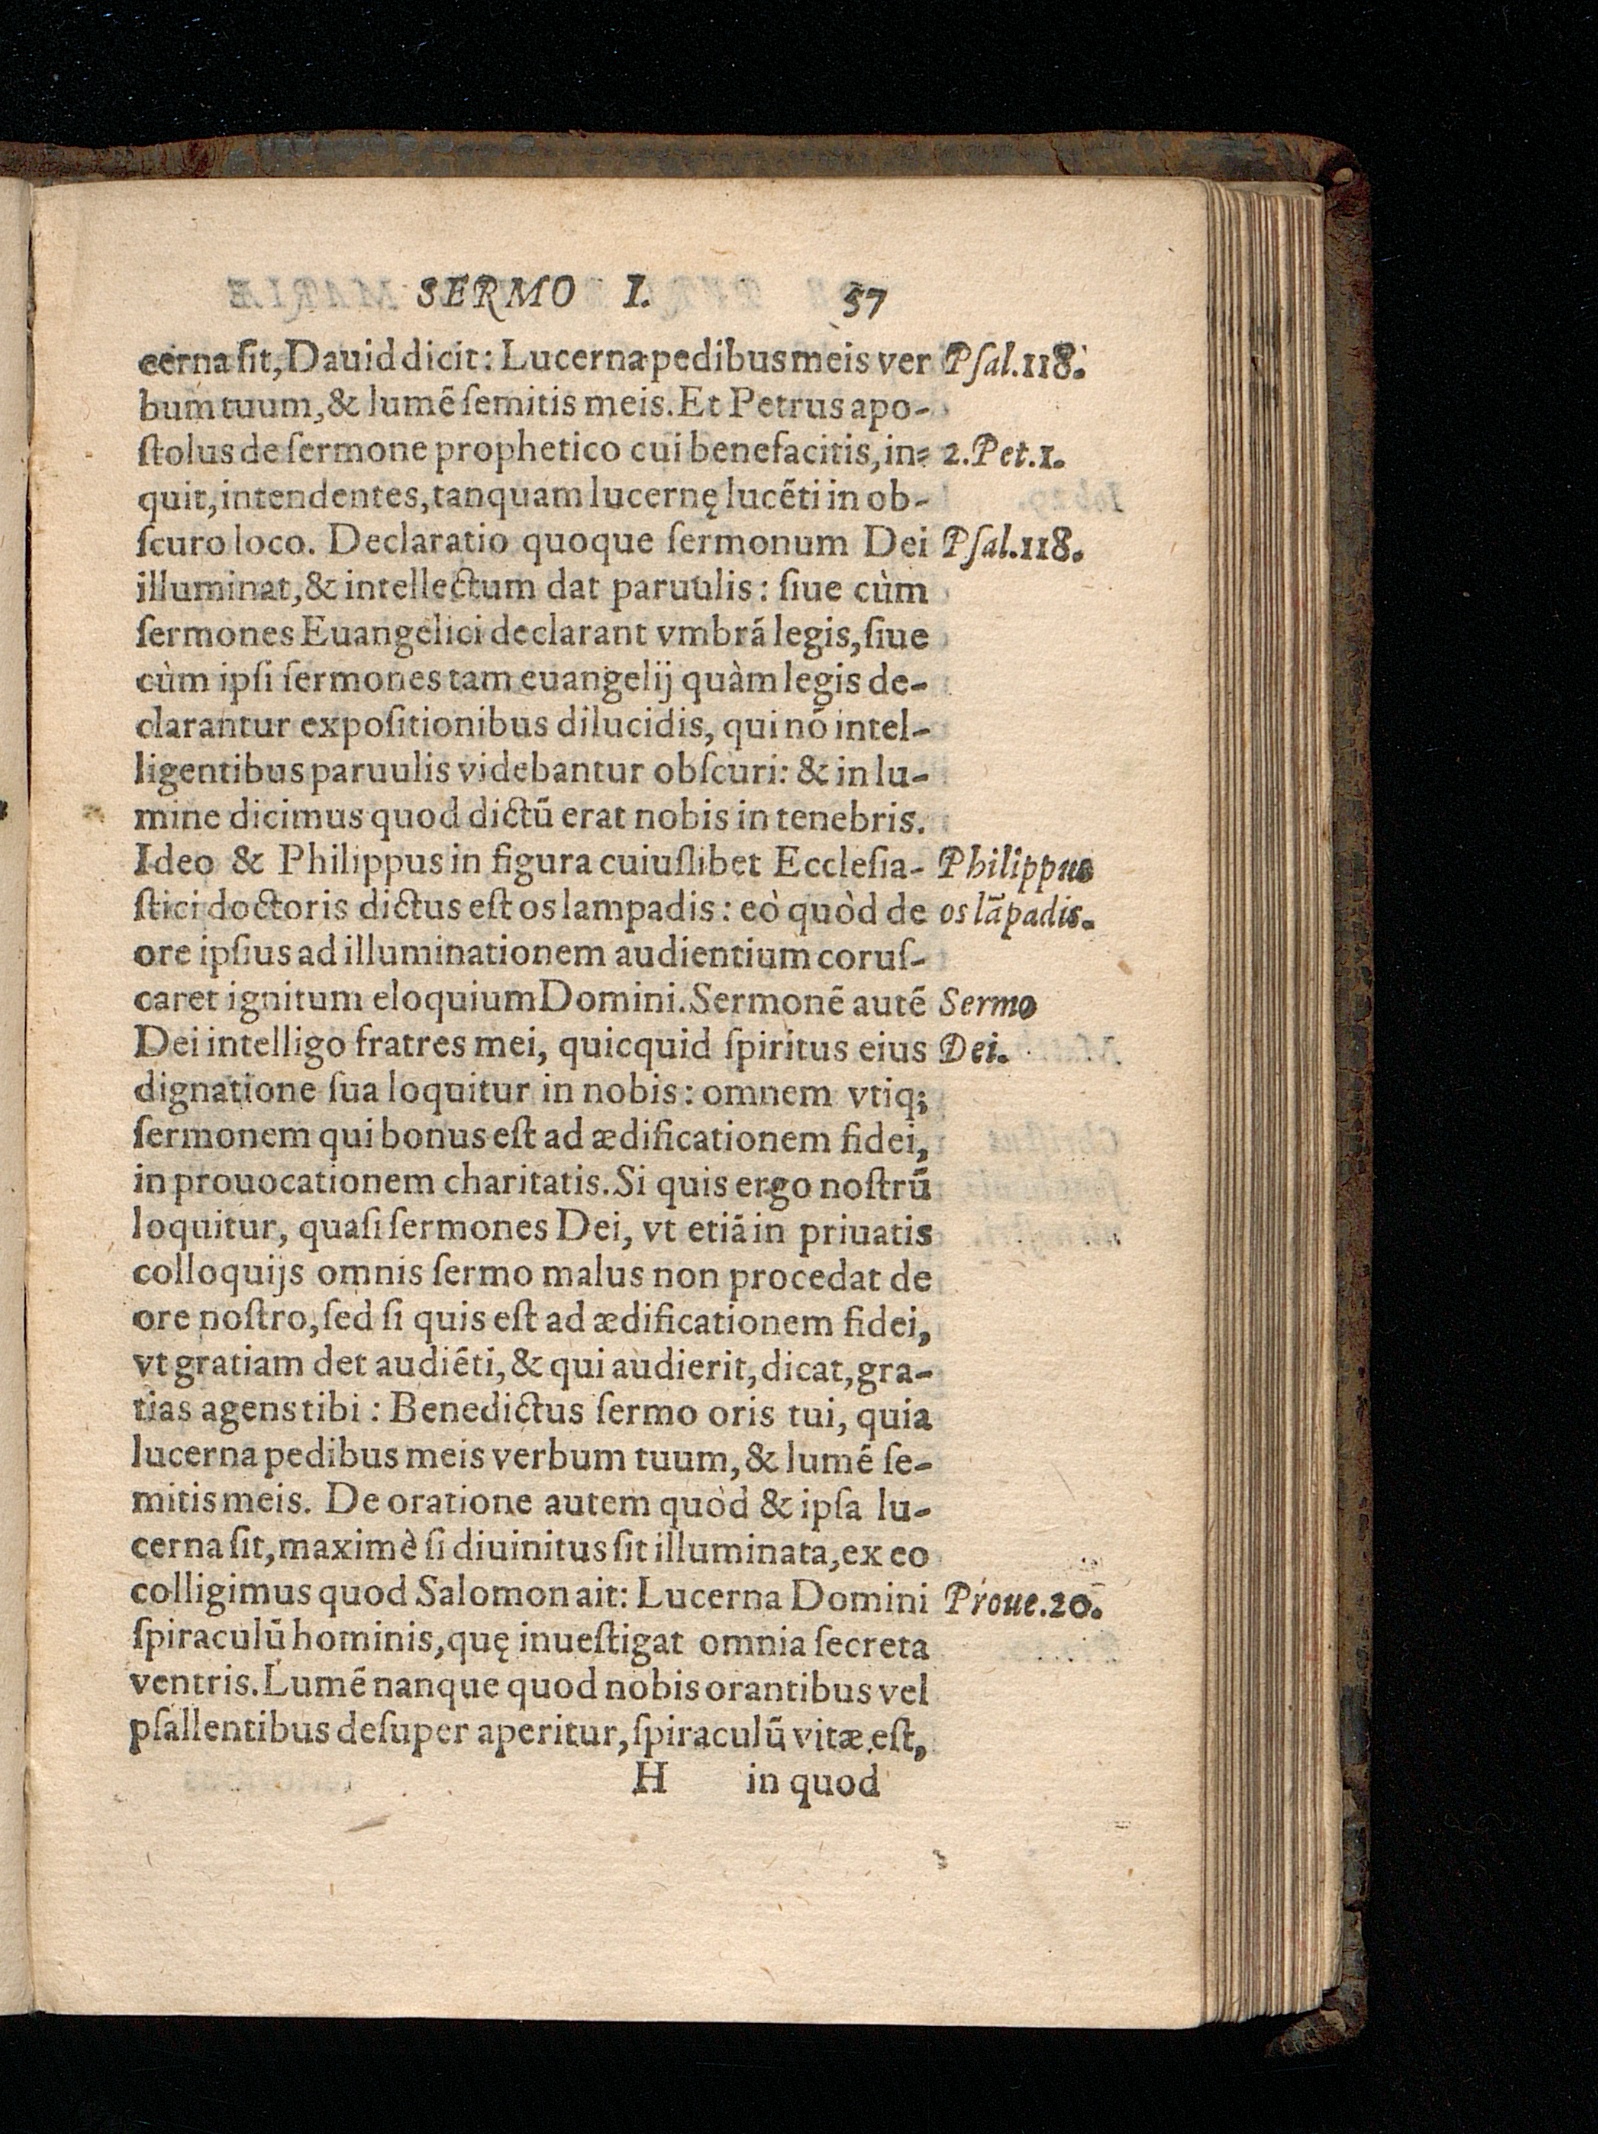 SERMO I. 57
cerna ſit, Dauid dicit: Lucerna pedibus meis ver Pſal.118.
bum tuum, & lumē ſemitis meis. Et Petrus apo-
ſtolus de ſermone prophetico cui benefacitis, in- 2.Pet.1.
quit, intendentes, tanquam lucernę lucēti in ob-
ſcuro loco. Declaratio quoque ſermonum Dei Pſal.118.
illuminat, & intellectum dat paruulis: ſiue cùm
ſermones Euangelici declarant vmbrā legis, ſiue
cùm ipſi ſermones tam euangelij quàm legis de-
clarantur expoſitionibus dilucidis, qui nō intel-
ligentibus paruulis videbantur obſcuri: & in lu-
mine dicimus quod dictū erat nobis in tenebris.
Ideo & Philippus in figura cuiuſlibet Eccleſia- Philippus
ſtici doctoris dictus eſt os lampadis: eò quòd de os lāpadis.
ore ipſius ad illuminationem audientium coruſ-
caret ignitum eloquium Domini. Sermonē autē Sermo
Dei intelligo fratres mei, quicquid ſpiritus eius Dei.
dignatione ſua loquitur in nobis: omnem vtiq;
ſermonem qui bonus eſt ad ædificationem fidei,
in prouocationem charitatis. Si quis ergo noſtrū
loquitur, quaſi ſermones Dei, vt etiā in priuatis
colloquijs omnis ſermo malus non procedat de
ore noſtro, ſed ſi quis eſt ad ædificationem fidei,
vt gratiam det audiēti, & qui audierit, dicat, gra-
tias agens tibi: Benedictus ſermo oris tui, quia
lucerna pedibus meis verbum tuum, & lumē ſe-
mitis meis. De oratione autem quòd & ipſa lu-
cerna ſit, maximè ſi diuinitus ſit illuminata, ex eo
colligimus quod Salomon ait: Lucerna Domini Proue.20.
ſpiraculū hominis, quę inueſtigat omnia ſecreta
ventris. Lumē nanque quod nobis orantibus vel
pſallentibus deſuper aperitur, ſpiraculū vitæ eſt,
H in quod